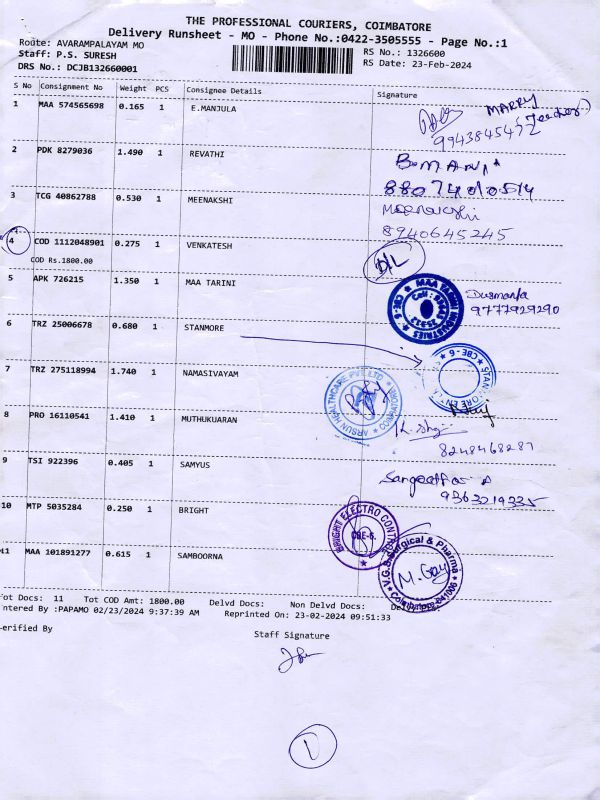 THE PROFESSIONAL COURIERS, COIMBATORE
Delivery Runsheet - MO - Phone No.:0422-3505555 - Page No.:1
Route: AVARAMPALAYAM MO RS No.: 1326600
Staff: P.S. SURESH RS Date: 23-Feb-2024
DRS No.: DCJB132660001
S No Consignment No Weight PCS Consignee Details Signature
1 MAA 574565698 0.165 1 E.MANJULA MARRY
(Teacher)
9943845472
2 PDK 8279036 1.490 1 REVATHI B.MANI
8807401054
3 TCG 40862788 0.530 1 MEENAKSHI Meenakshi
8940645245
4 COD 1112048901 0.275 1 VENKATESH D/L
COD Rs.1800.00
5 APK 726215 1.350 1 MAA TARINI MAA TARINI INDUSTRIES CBE-6
9777929290
6 TRZ 25006678 0.680 1 STANMORE CBE-6 STANMORE
7 TRZ 275118994 1.740 1 NAMASIVAYAM ARSUN HEALTHCARE PVT LTD
8 PRO 16110541 1.410 1 MUTHUKUARAN
8248468287
9 TSI 922396 0.405 1 SAMYUS
9363019335
10 MTP 5035284 0.250 1 BRIGHT BRIGHT ELECTRO CONTR CBE-6.
11 MAA 101891277 0.615 1 SAMBOORNA V.G.S Surgical & Pharma Coimbatore-641006
Tot Docs: 11 Tot COD Amt: 1800.00 Delvd Docs: Non Delvd Docs:
ntered By :PAPAMO 02/23/2024 9:37:39 AM Reprinted On: 23-02-2024 09:51:33
erified By
Staff Signature